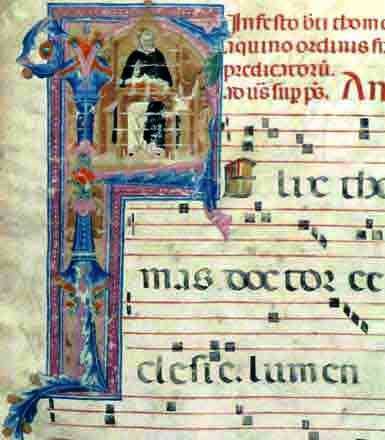 In festo bti thom
aquino ordinis f
predicatorū.
An
Felix tho
mas doctor ec
clesie. lumen